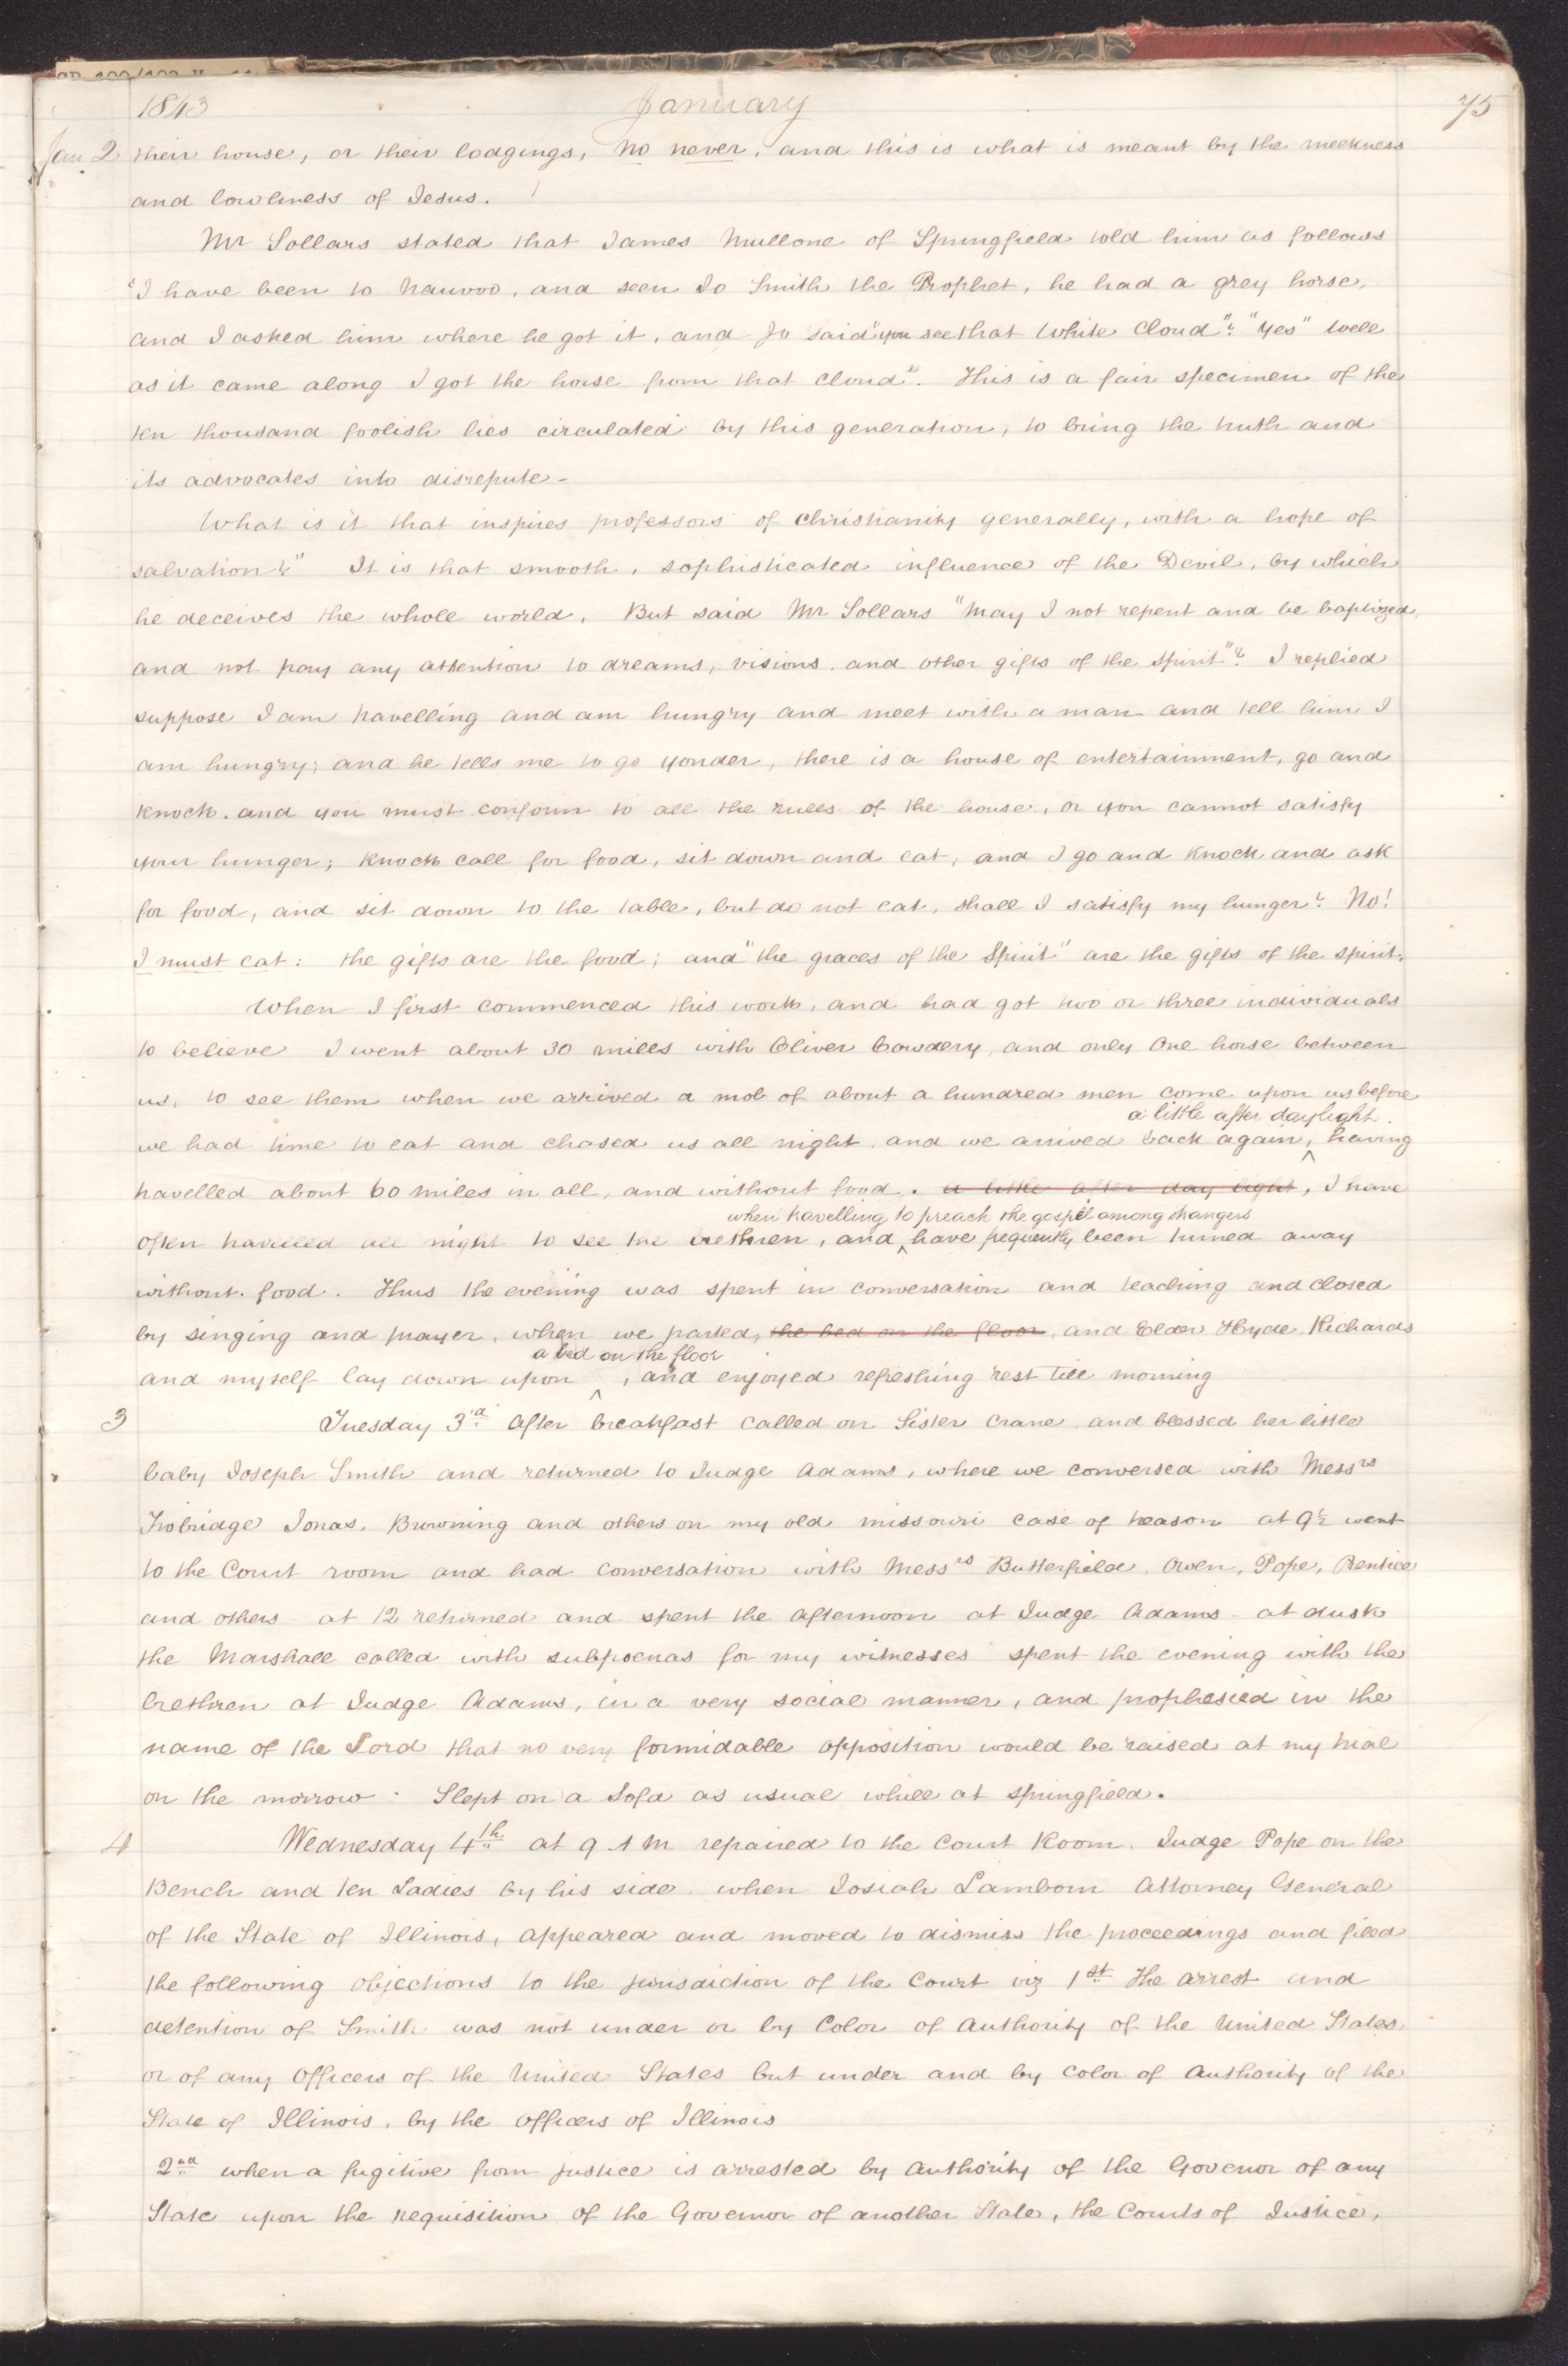 1843 January 75
Jan 2 their house, or their lodgings, no never, and this is what is meant by the meekness
and lowliness of Jesus.
Mr Sollars stated that James Mullone of Springfield told him as follows
"I have been to Nauvoo, and seen Jo Smith the Prophet, he had a grey horse,
and I asked him where he got it, and Jo said "you see that white cloud"? "Yes" Well
as it came along I got the horse from that cloud". This is a fair specimen of the
ten thousand foolish lies circulated by this generation, to bring the truth and
its advocates into disrepute-
What is it that inspires professors of Christianity generally, with a hope of
salvation?" It is that smooth, sophisticated influence of the Devil, by which
he deceives the whole world. But said Mr Sollars "May I not repent and be baptized,
and not pay any attention to dreams, visions, and other gifts of the Spirit"? I replied
suppose I am travelling and am hungry and meet with a man and tell him I
am hungry; and he tells me to go yonder, there is a house of entertainment, go and
knock, and you must conform to all the rules of the house, or you cannot satisfy
your hunger; knock call for food, sit down and eat, and I go and knock and ask
for food, and sit down to the table, but do not eat, shall I satisfy my hunger? No!
I must eat: the gifts are the food; and "the graces of the Spirit" are the gifts of the spirit.
When I first commenced this work, and had got two or three individuals
to believe I went about 30 miles with Oliver Cowdery, and only One horse between
us, to see them when we arrived a mob of about a hundred men come upon us before
a little after daylight.
we had time to eat and chased us all night, and we arrived back again, ^ having
travelled about 60 miles in all, and without food. a little after day light, I have
when travelling to preach the gospel among strangers
often travelled all night to see the brethren, and ^ have frequently been turned away
without food. Thus the evening was spent in conversation and teaching and closed
by singing and prayer, when we parted, the bed on the floor, and Elder Hyde, Richards
a bed on the floor
and myself lay down upon ^, and enjoyed refreshing rest till morning
3 Tuesday 3d After breakfast called on Sister Crane and blessed her little
baby Joseph Smith and returned to Judge Adams, where we conversed with Messrs
Trobridge Jonas, Browning and others on my old missouri case of treason at 9½ went
to the Court room and had conversation with Messrs Butterfield, Owen, Pope, Prentice
and others at 12 returned and spent the afternoon at Judge Adams - at dusk
the Marshall called with subpoenas for my witnesses spent the evening with the
brethren at Judge Adams, in a very social manner, and prophesied in the
name of the Lord that no very formidable opposition would be raised at my trial
on the morrow. Slept on a Sofa as usual while at Springfield.
4 Wednesday 4th at 9 A M repaired to the Court Room. Judge Pope on the
Bench and ten Ladies by his side. when Josiah Lamborn Attorney General
of the State of Illinois, appeared and moved to dismiss the proceedings and filed
the following objections to the jurisdiction of the Court viz 1st The arrest and
detention of Smith was not under or by Color of Authority of the United States,
or of any Officers of the United States but under and by color of Authority of the
State of Illinois, by the officers of Illinois
2nd when a fugitive from justice is arrested by authority of the Govenor of any
State upon the requisition of the Governor of another State, the Courts of Justice,